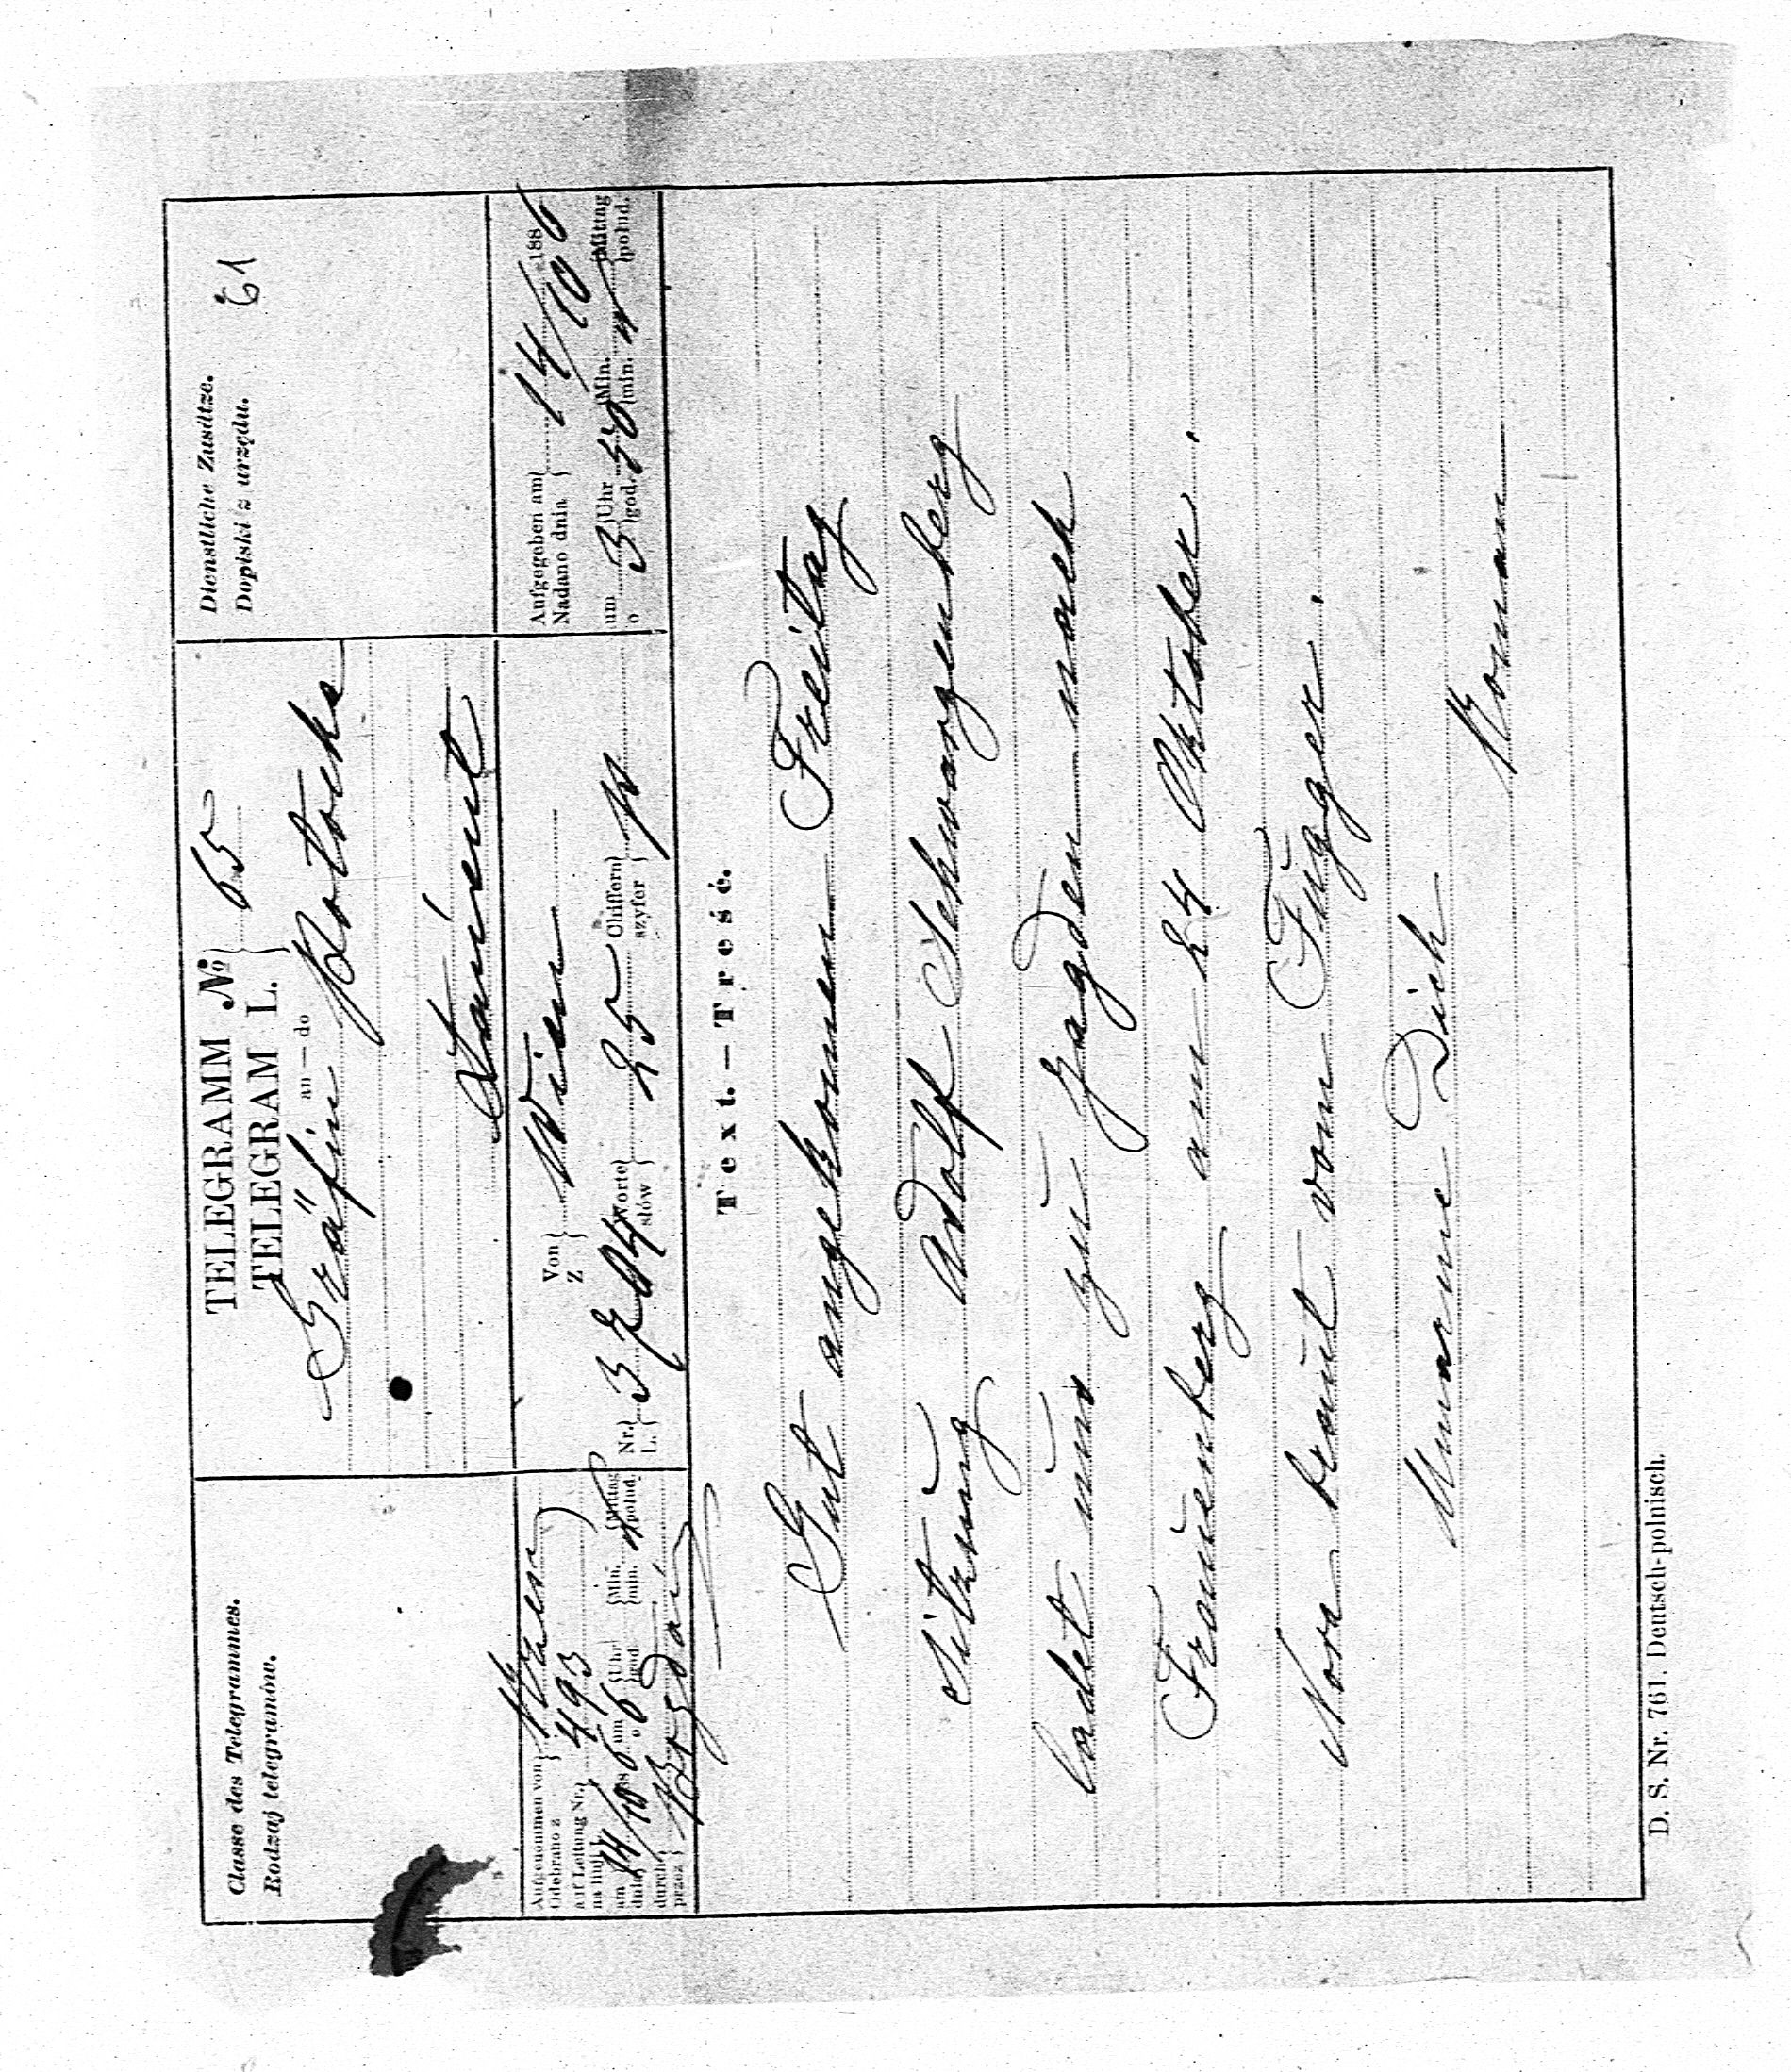 Classe des Telegrammes.
Rodzaj telegramów.
TELEGRAMM № } 65
TELEGRAM L. }
an — do
Gräfin Potocka
Łańcut
Dienstliche Zusätze.
Dopiski z urzędu.
61
Aufgenommen von }
Odebrano z
auf Leitung Nr. } 493
na linji
am } 14/10 188 6 um 6 { Uhr { Min. { Mittag
dnia o { god. { min. { połud.
durch }
przez }
Von } Wien
Z }
Nr. } 3 Worte } 25 Chiffern }
L. } słów } szyfer }
Aufgegeben am } 14/10 188 6
Nadano dnia }
um 3 { Uhr 50 { Min. { Mittag
o { god. { min. { połud.
Text. — Treść.
Gut angekomen Freitag
Sitzung Adolf Schwarzenberg
ladet uns zu Jagden nach
Frauenberg am 24 Oktober.
Nora braut von Fugger.
Umarme Dich Roman
D. S. Nr. 761. Deutsch-polnisch.